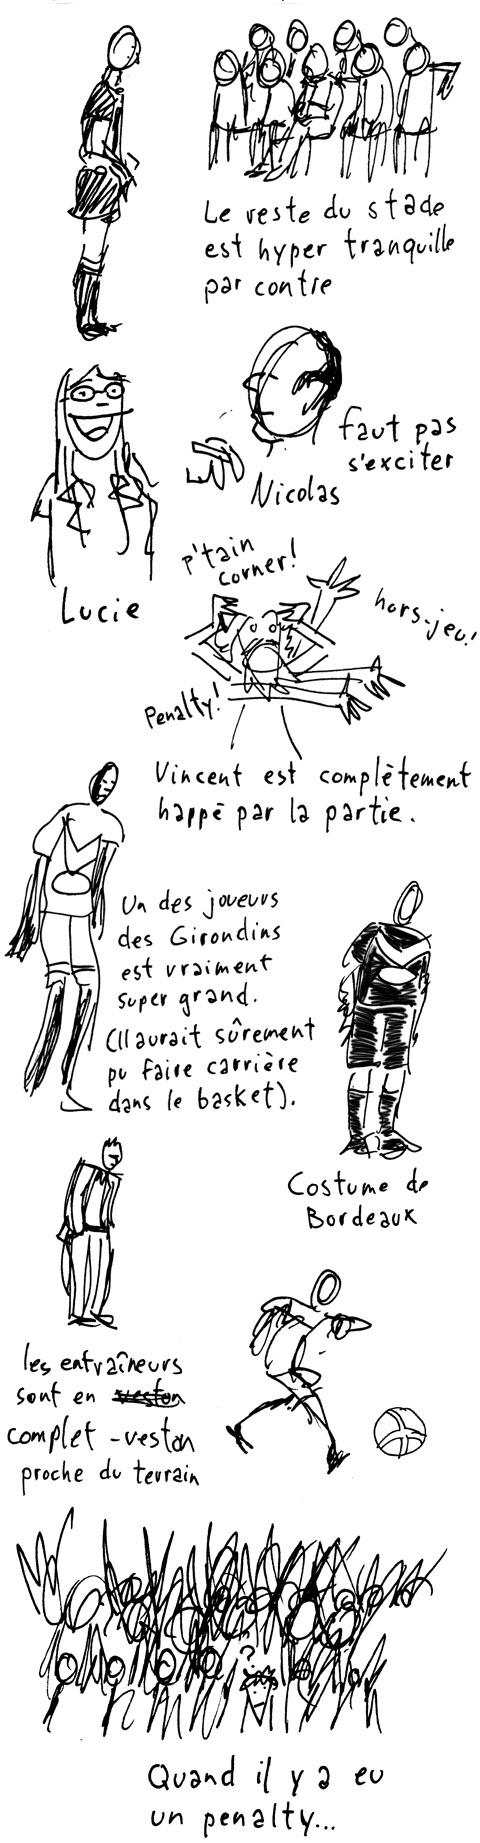 Le reste du stade
est hyper tranquille
par contre
faut pas
s'exciter
Nicolas
Lucie
p'tain
corner!
hors-jeu!
Penalty!
Vincent est complètement
happé par la partie.
Un des joueurs
des Girondins
est vraiment
super grand.
(Il aurait sûrement
pu faire carrière
dans le basket).
Costume de
Bordeaux
les entraîneurs
sont en veston
complet-veston
proche du terrain
?
Quand il y a eu
un penalty...